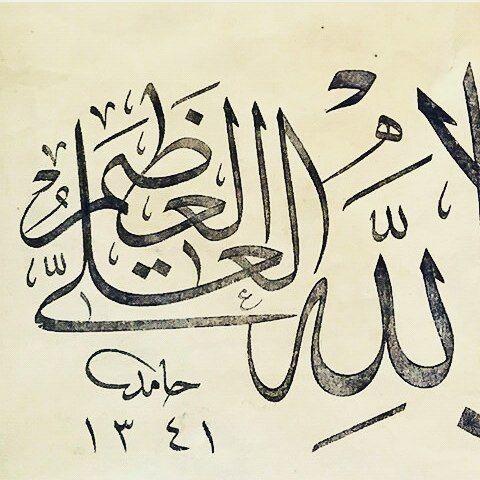 لله العلي العظيم
حامد
١٣٤١